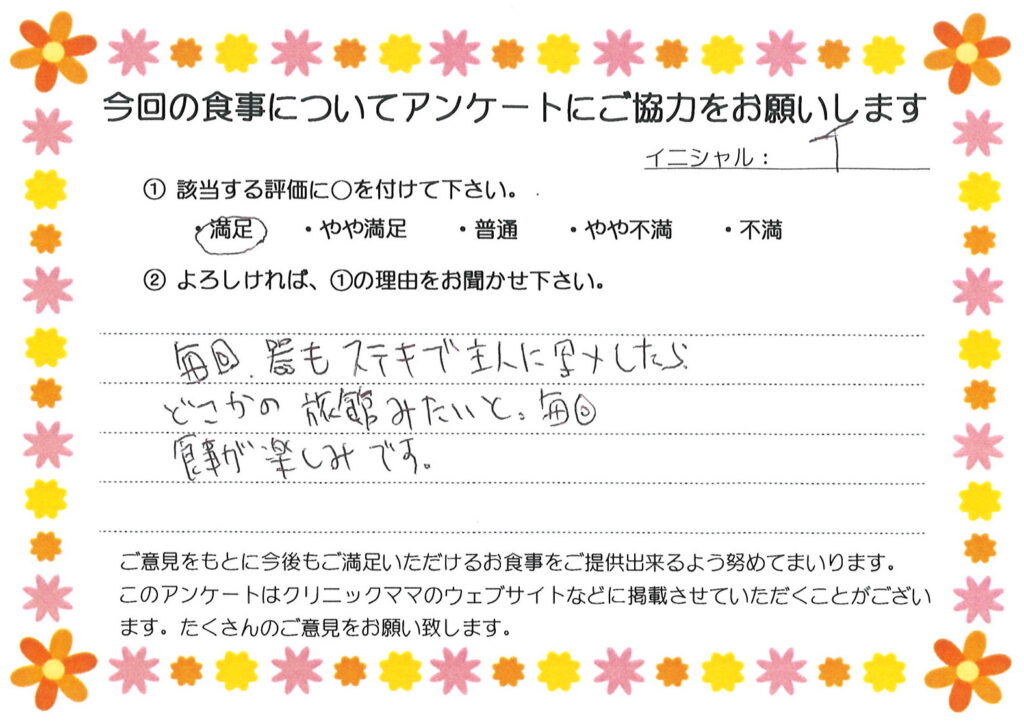 今回の食事についてアンケートにご協力をお願いします
イニシャル： T
① 該当する評価に〇を付けて下さい。
・満足 ・やや満足 ・普通 ・やや不満 ・不満
② よろしければ、①の理由をお聞かせ下さい。
毎回、器もステキで主人に写メしたら
どこかの旅館みたいと。毎回
食事が楽しみです。
ご意見をもとに今後もご満足いただけるお食事をご提供出来るよう努めてまいります。
このアンケートはクリニックママのウェブサイトなどに掲載させていただくことがござい
ます。たくさんのご意見をお願い致します。